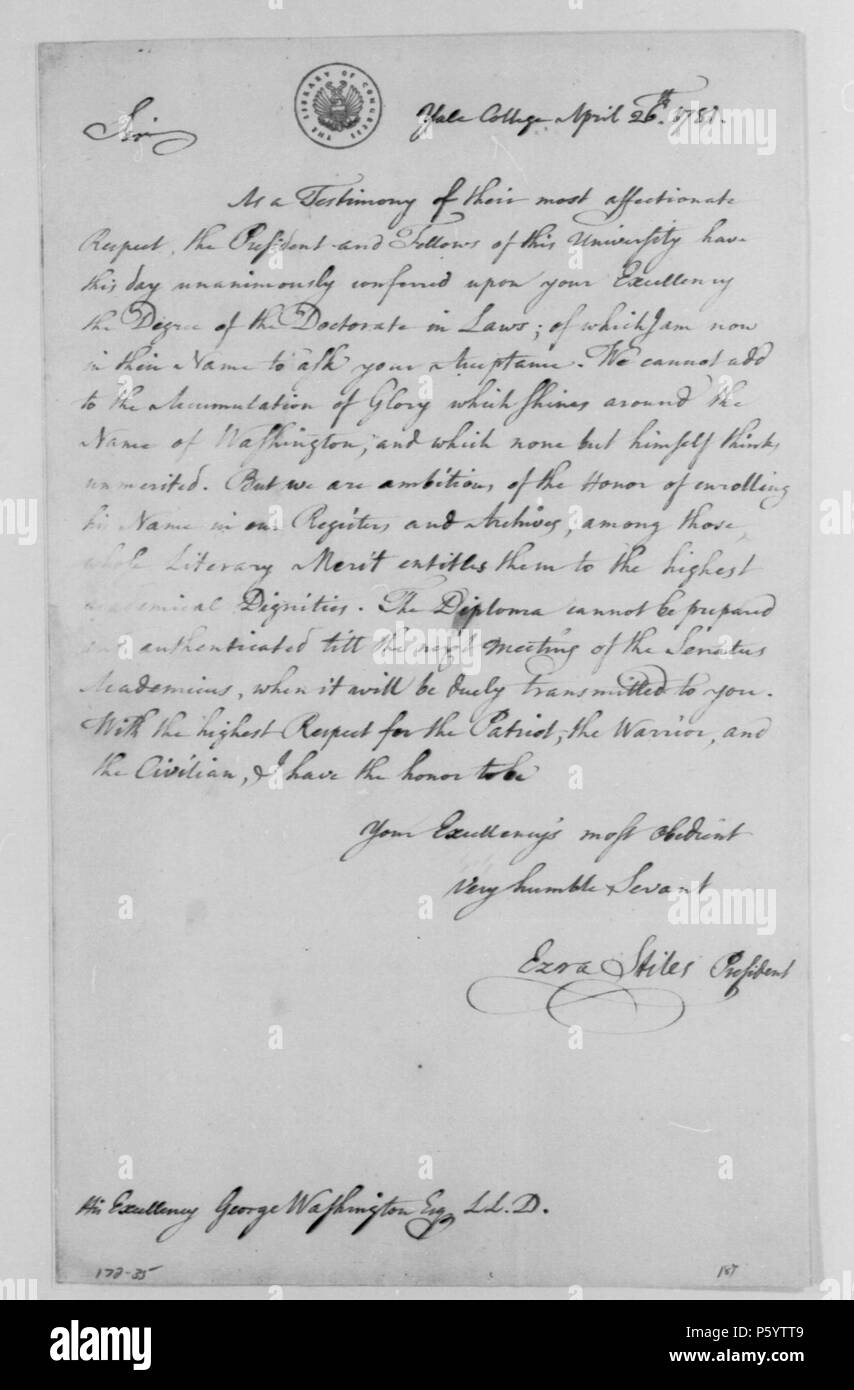 THE LIBRARY OF CONGRESS
Yale College April 26th. 1781.
Sir
As a Testimony of their most affectionate
Respect, the President and Fellows of this University have
this day unanimously conferred upon your Excellency
the Degree of the Doctorate in Laws; of which I am now
in their Name to ask your Acceptance. We cannot add
to the Accumulation of Glory which shines around the
Name of Washington, and which none but himself thinks
unmerited. But we are ambitious of the Honor of enrolling
his Name in our Registers and Archives, among those,
whose Literary Merit entitles them to the highest
academical Dignities. The Diploma cannot be prepared
and authenticated till the next meeting of the Senatus
Academicus, when it will be duely transmitted to you.
With the highest Respect for the Patriot, the Warrior, and
the Civilian, I have the honor to be
Your Excellency's most obedient
very humble Sevant
Ezra Stiles President
His Excellency George Washington Esq LL.D.
172-35
187
alamy
Image ID: P5YTT9
www.alamy.com